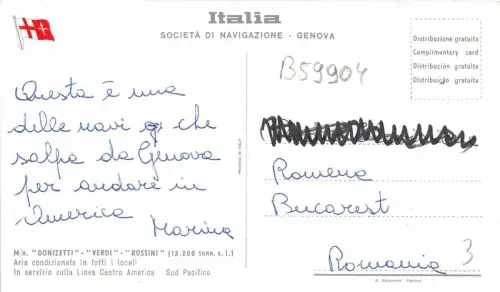 Italia
SOCIETÀ DI NAVIGAZIONE - GENOVA
Distribuzione gratuita
Complimentary card
Distribución gratuita
Distribuição gratuita
B59904
Questa è una
delle navi che
salpa da Genova
per andare in
America
Marina
Romena
Bucarest
Romania
3
M/n. "DONIZETTI" - "VERDI" - "ROSSINI" (13.200 tonn. s.l.)
Aria condizionata in tutti i locali
In servizio sulla Linea Centro America Sud Pacifico